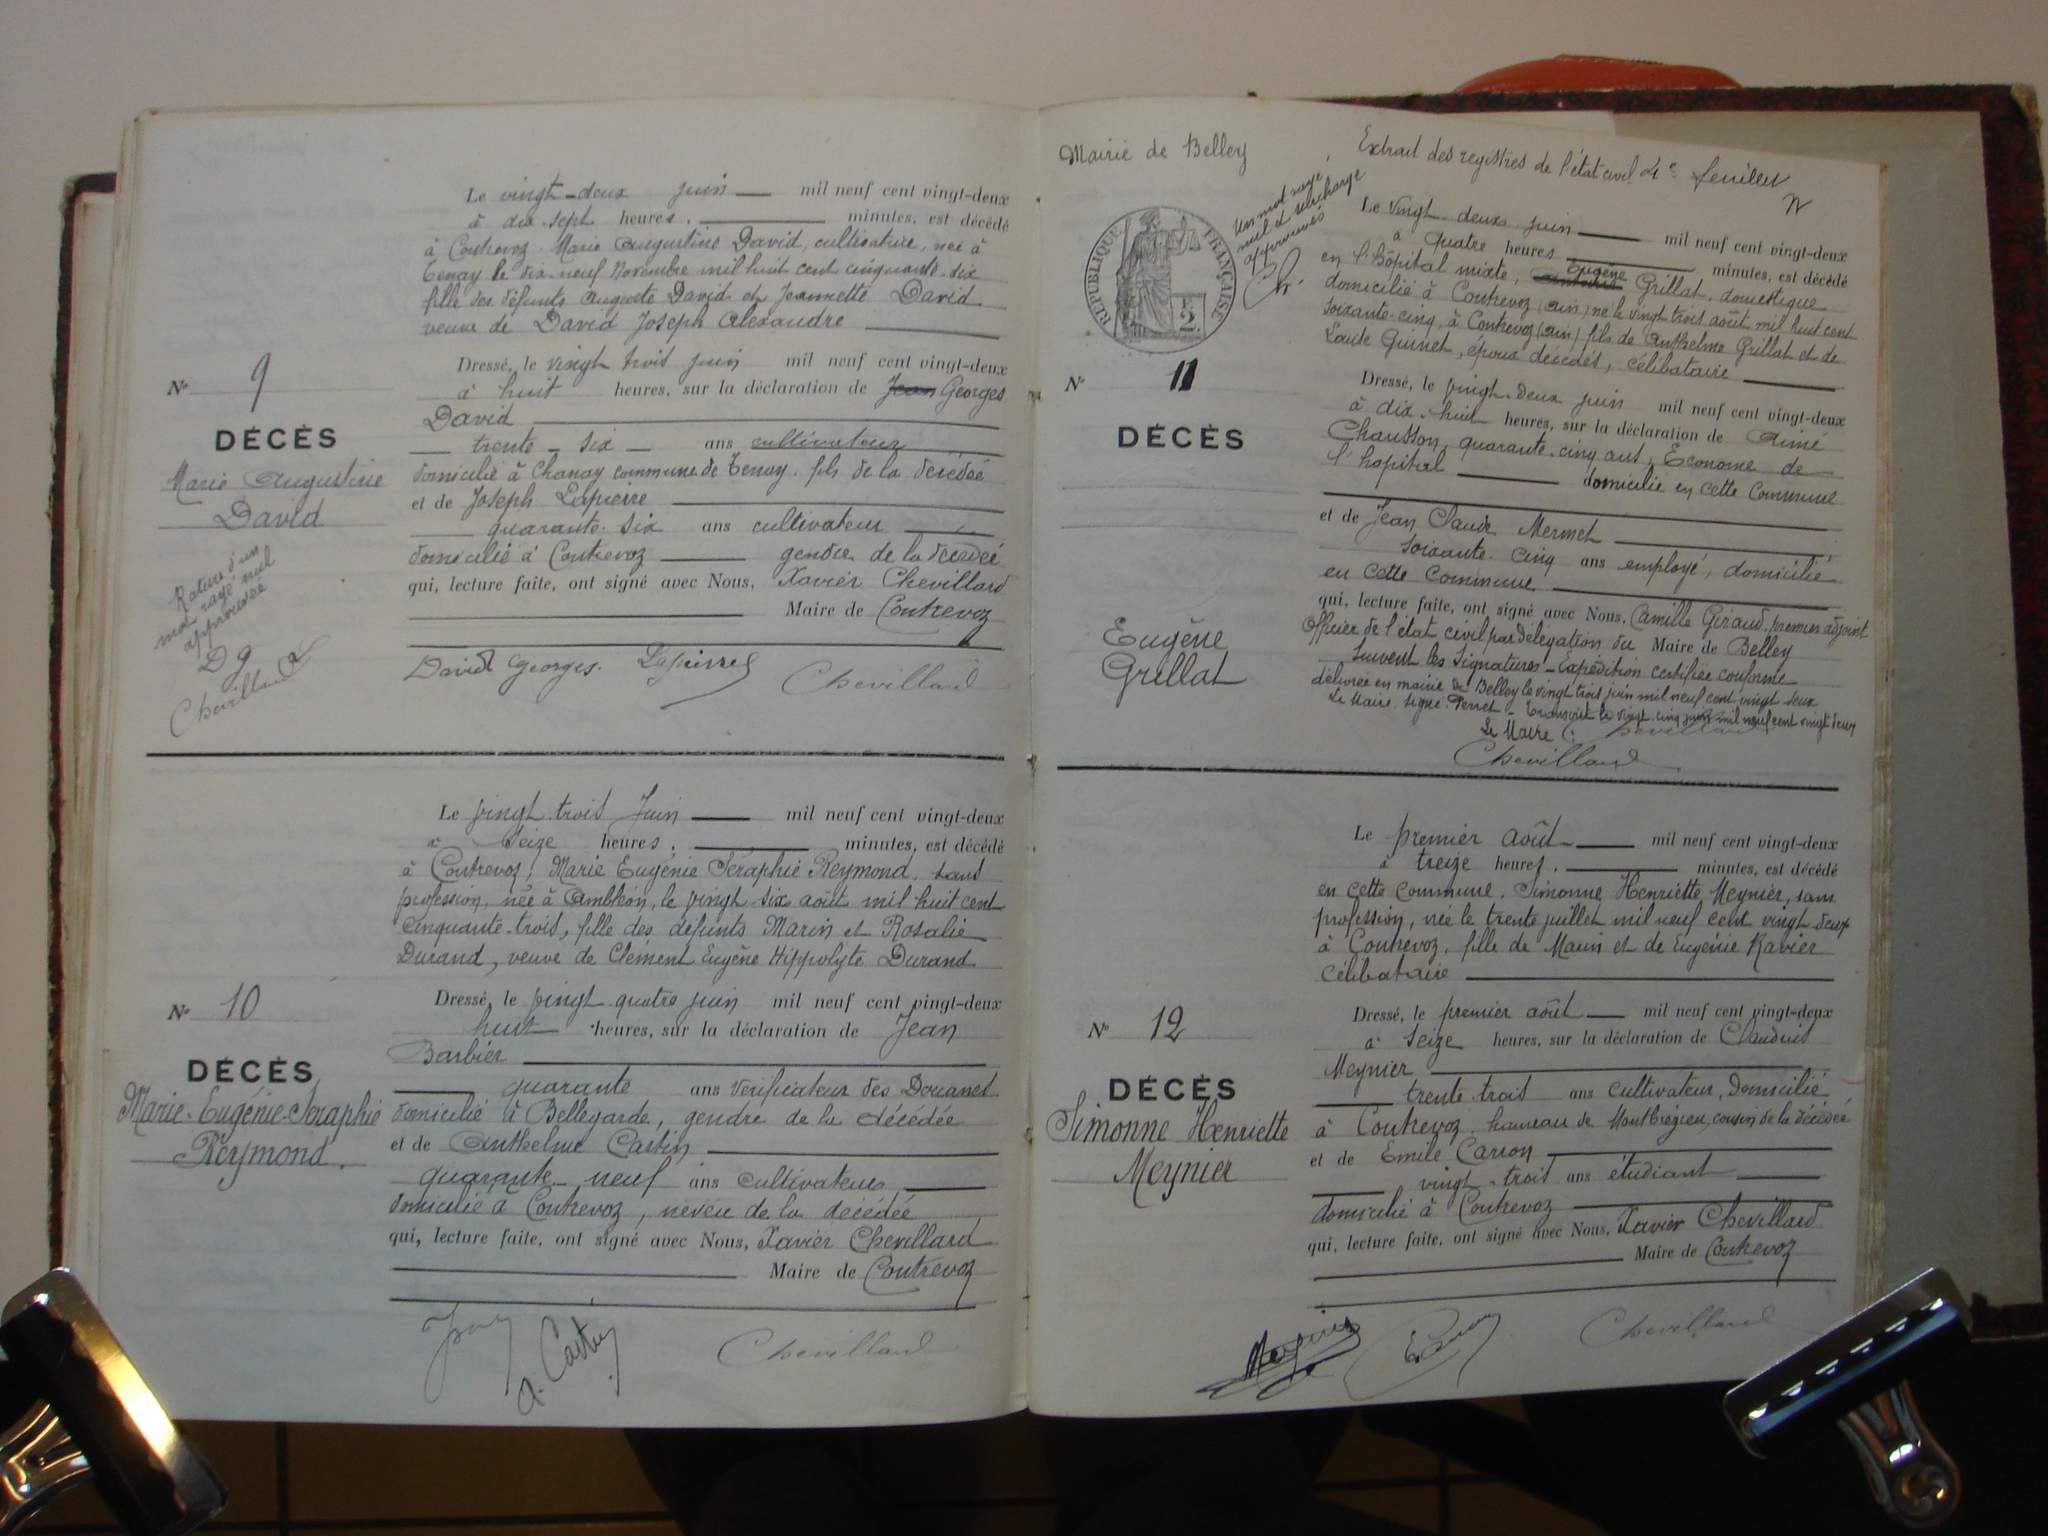 Le vingt-deux juin mil neuf cent vingt-deux
à dix-sept heures, minutes, est décédé
à Contrevoz Marie Augustine David, cultivatrice, née à
Tenay le dix-neuf Novembre mil huit cent cinquante-six
fille des défunts Auguste David et Jeannette David
veuve de David Joseph Alexandre
Dressé, le vingt trois juin mil neuf cent vingt-deux
à huit heures, sur la déclaration de Jean Georges
David
trente-six ans cultivateur
domicilié à Chanay commune de Tenay, fils de la décédée
et de Joseph Lapierre
quarante-six ans cultivateur
domicilié à Contrevoz gendre de la décédée
qui, lecture faite, ont signé avec Nous, Xavier Chevillard
Maire de Contrevoz
David Georges. Lapierre Chevillard
N° 9
DÉCÈS
Marie Augustine
David
Rature d'un
mot rayé nul
approuvée
D g
Chevillard
Le vingt-trois Juin mil neuf cent vingt-deux
à seize heures, minutes, est décédé
à Contrevoz, Marie Eugénie Séraphie Reymond, sans
profession, née à Ambléon, le vingt-six août mil huit cent
cinquante-trois, fille des défunts Marin et Rosalie
Durand, veuve de Clément Eugène Hippolyte Durand
Dressé, le vingt-quatre juin mil neuf cent vingt-deux
huit heures, sur la déclaration de Jean
Barbier
quarante ans vérificateur des Douanes
domicilié à Bellegarde, gendre de la décédée
et de Anthelme Castin
quarante-neuf ans cultivateur
domicilié à Contrevoz, neveu de la décédée
qui, lecture faite, ont signé avec Nous, Xavier Chevillard
Maire de Contrevoz
A. Castin Chevillard
N° 10
DÉCÈS
Marie-Eugénie-Séraphie
Reymond.
Mairie de Belley
Extrait des registres de l'état civil 2e feuillet
Un mot rayé
nul et surcharge
approuvés
Ch.
RÉPUBLIQUE FRANÇAISE
Le vingt-deux juin mil neuf cent vingt-deux
à quatre heures minutes, est décédé
Eugène
en l'hôpital mixte, Antoine Grillat, domestique
domicilié à Contrevoz (Ain) né le vingt trois août mil huit cent
soixante-cinq, à Contrevoz (Ain) fils de Anthelme Grillat et de
Louise Guinet, époux décédés, célibataire
Dressé, le vingt-deux juin mil neuf cent vingt-deux
à dix-huit heures, sur la déclaration de Aimé
Chausson, quarante-cinq ans, Econome de
l'hopital domicilié en cette commune
et de Jean Claude Mermet
soixante-cinq ans employé, domicilié
en cette commune
qui, lecture faite, ont signé avec Nous, Camille Giraud, premier adjoint
Officier de l'état civil par délégation du Maire de Belley
Suivent les signatures - Expédition certifiée conforme
délivrée en mairie de Belley le vingt trois juin mil neuf cent vingt deux
Le Maire signé: Perret - Transcrit le vingt-cinq juin mil neuf cent vingt deux
Le Maire C: Chevillard
Chevillard
N° 11
DÉCÈS
Eugène
Grillat
Le premier août mil neuf cent vingt-deux
à treize heures, minutes, est décédé
en cette commune, Simonne Henriette Meynier, sans
profession, née le trente juillet mil neuf cent vingt deux
à Contrevoz, fille de Marin et de Eugénie Ravier
célibataire
Dressé, le premier août mil neuf cent vingt-deux
à seize heures, sur la déclaration de Claudius
Meynier
trente-trois ans cultivateur, domicilié
à Contrevoz, hameau de Montbrézieu, cousin de la décédée
et de Emile Carron
vingt-trois ans étudiant
domicilié à Contrevoz
qui, lecture faite, ont signé avec Nous, Xavier Chevillard
Maire de Contrevoz
Meynier Chevillard
N° 12
DÉCÈS
Simonne Henriette
Meynier